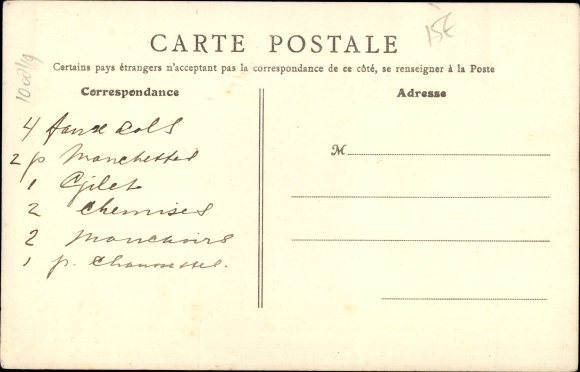 15€
1000119
CARTE POSTALE
Certains pays étrangers n'acceptant pas la correspondance de ce côté, se renseigner à la Poste
Correspondance
4 faux cols
2 p Manchettes
1 Gilet
2 chemises
2 mouchoirs
1 p. chaussettes.
Adresse
M